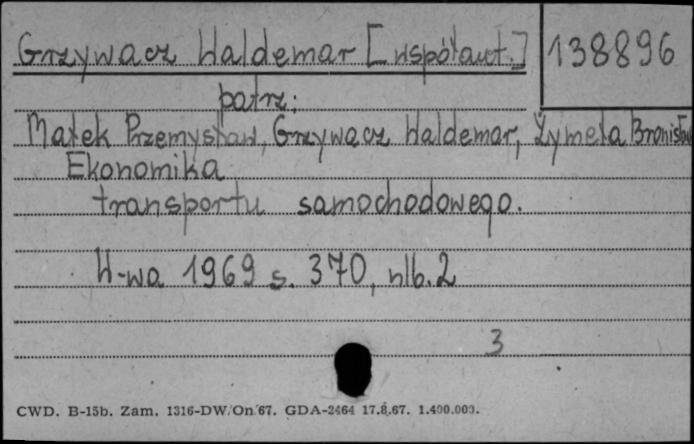 Grzywacz Waldemar [współaut.]
138896
patrz:
Małek Przemysław, Grzywacz Waldemar, Żymeła Bronisław
Ekonomika
transportu samochodowego.
W-wa 1969 s. 370, nlb. 2
3
CWD. B-15b. Zam. 1316-DW/On/67. GDA-2464 17.8.67. 1.400.000.